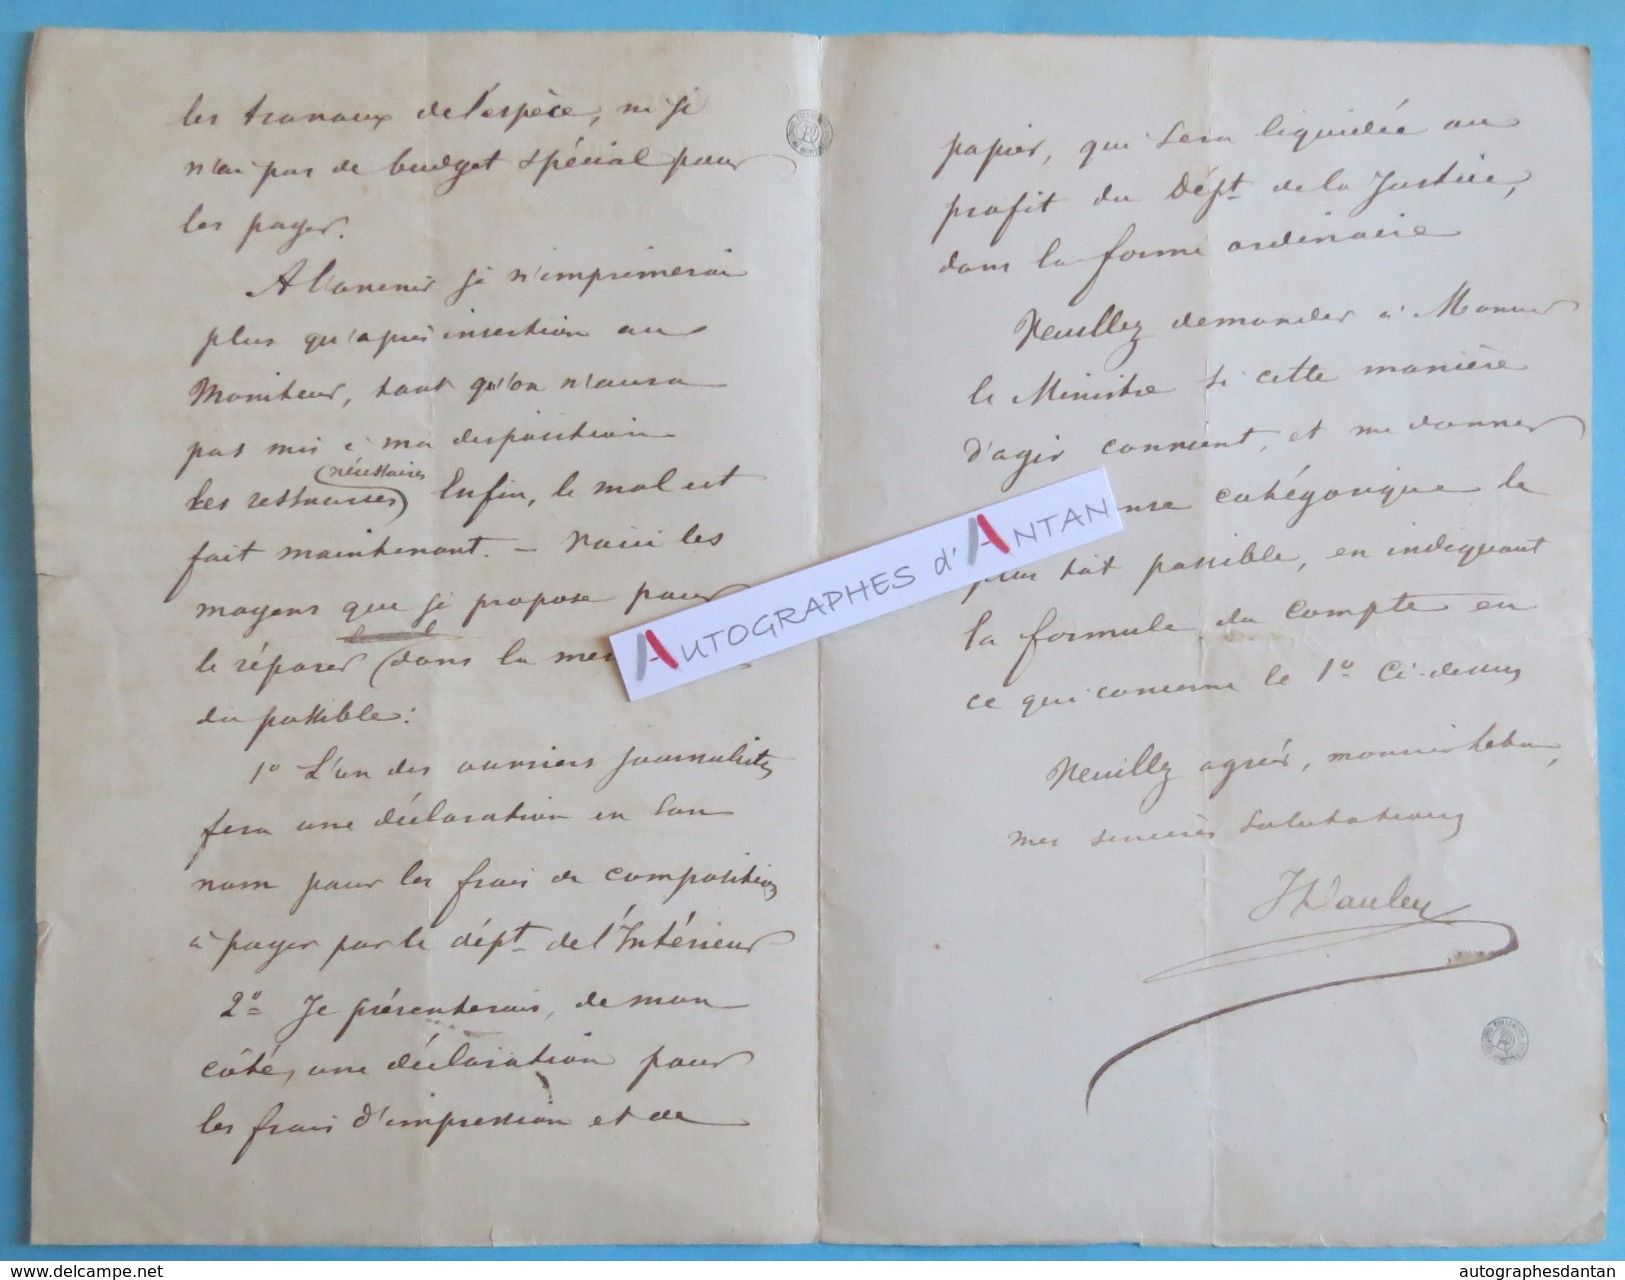 les travaux de l'espèce, ni je
n'ai pas de budget spécial pour
les payer.
A l'avenir je n'imprimerai
plus qu'après insertion au
Moniteur, tant qu'on n'aura
pas mis à ma disposition
nécessaires
les ressources Enfin, le mal est
fait maintenant. – Voici les
moyens que je propose pour
le réparer (dans la
du possible:
1º L'un des ouvriers journalistes
fera une déclaration en son
nom pour les frais de composition
à payer par le dépt. de l'Intérieur
2º Je présenterais, de mon
côté, une déclaration pour
les frais d'impression et de
papier, qui sera liquidée au
profit du Dépt. de la Justice,
dans la forme ordinaire
Veuillez demander à Monsieur
le Ministre si cette manière
d'agir convient, et me donner
catégorique le
plus tôt possible, en indiquant
la formule du compte en
ce qui concerne le 1º ci-dessus
Veuillez agréer,
mes sincères salutations
AUTOGRAPHES d'ANTAN
www.delcampe.net
autographesdantan